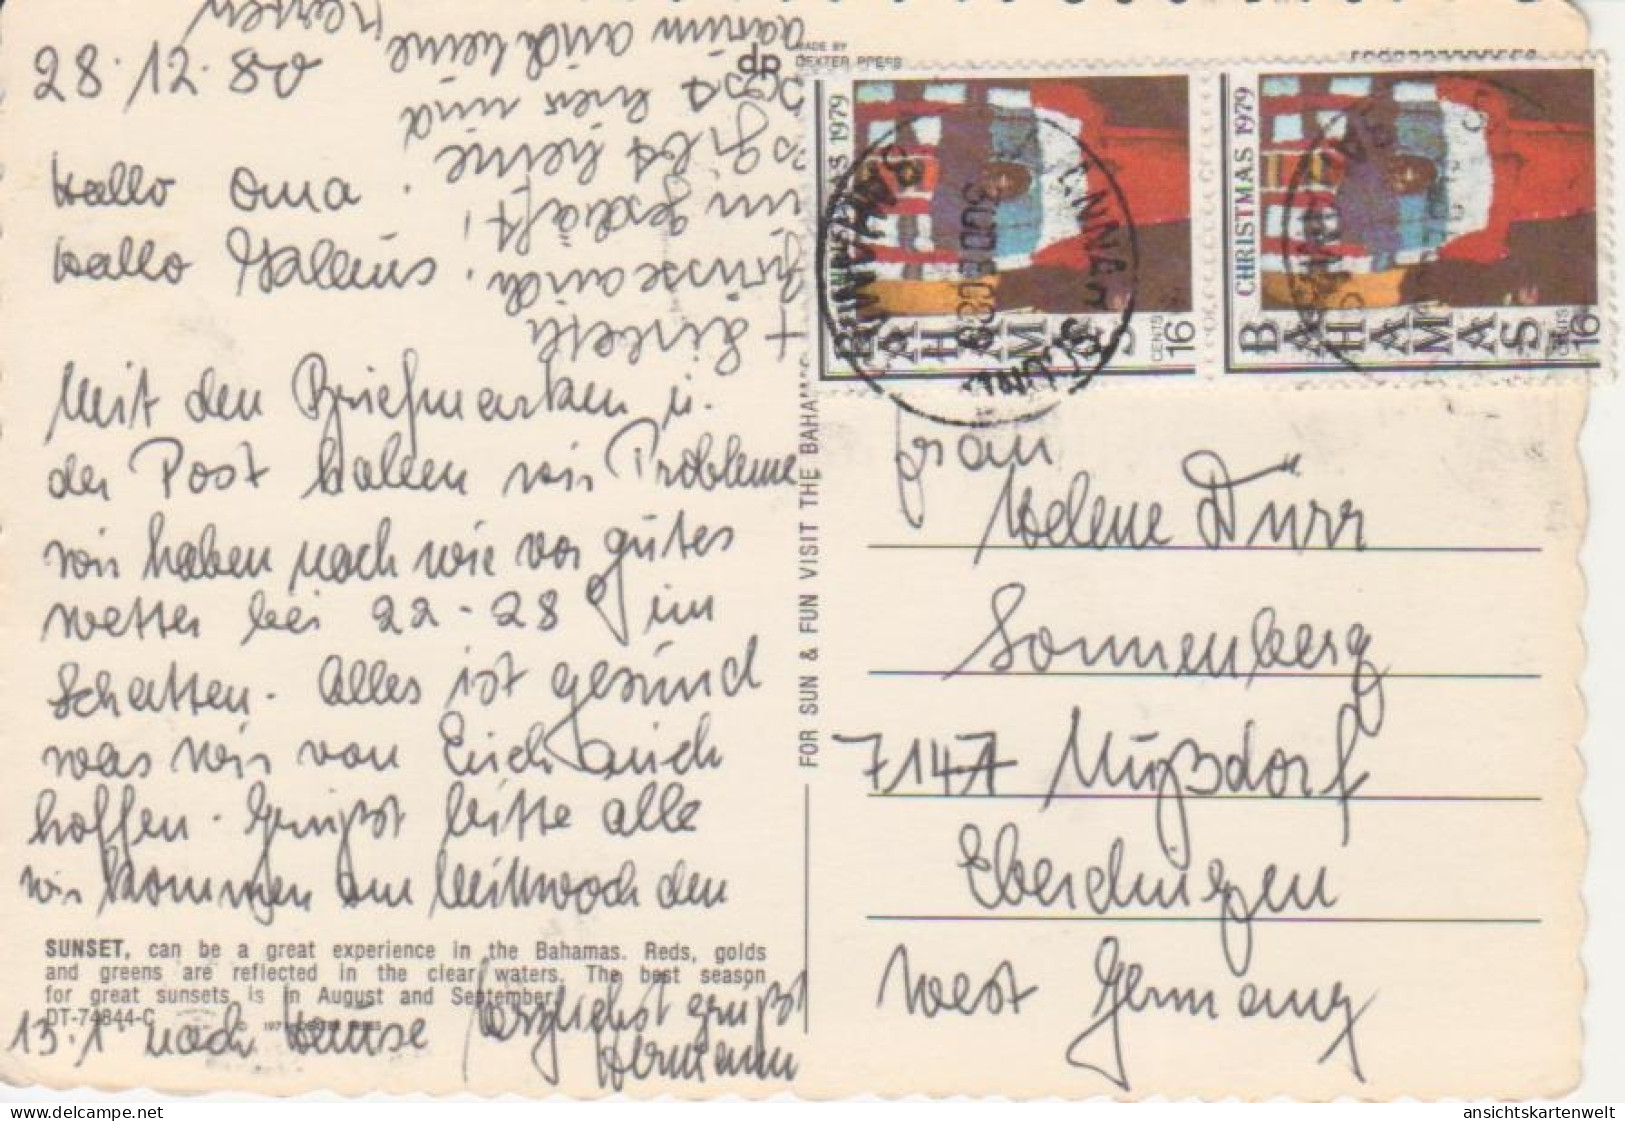 28.12.80
Hallo Oma.
Hallo
Mit den Briefmarken u.
der Post haben wir Probleme
wir haben nach wie vor gutes
wetter bei 22-28° im
Schatten. Alles ist gesund
was wir von Euch auch
hoffen. Grüßt bitte alle
wir kommen am Mittwoch den
13.1. nach Hause Herzlichst grüßt
Hermann
+ Lisbeth
Grüsse auch
im geschäft!
es gibt keine
hier und
darum auch keine
Karten
SUNSET, can be a great experience in the Bahamas. Reds, golds
and greens are reflected in the clear waters. The best season
for great sunsets is in August and September.
DT-74844-C
dp
MADE BY
DEXTER PRESS
FOR SUN & FUN VISIT THE BAHAMAS
CHRISTMAS 1979
BAHAMAS
16 CENTS
CHRISTMAS 1979
BAHAMAS
16 CENTS
BAHAMAS
Frau
Helene Dürr
Sonnenberg
7147 Nußdorf
Eberdingen
West Germany
ansichtskartenwelt